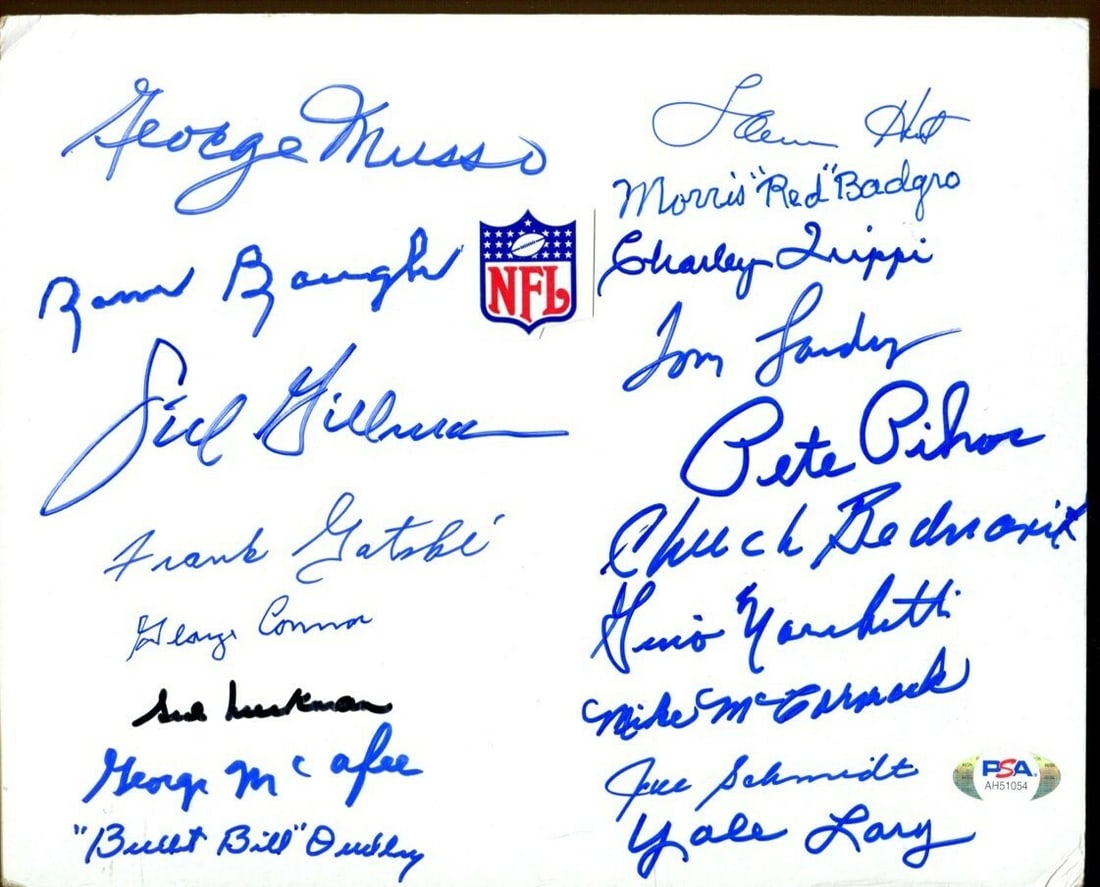 George Musso
Sam Baugh
Sid Gillman
Frank Gatski
George Connor
Sid Luckman
George McAfee
"Bullet Bill" Dudley
NFL
Lamar Hunt
Morris "Red" Badgro
Charley Trippi
Tom Landry
Pete Pihos
Chuck Bednarik
Gino Marchetti
Mike McCormack
Joe Schmidt
Yale Lary
PSA
AH51054